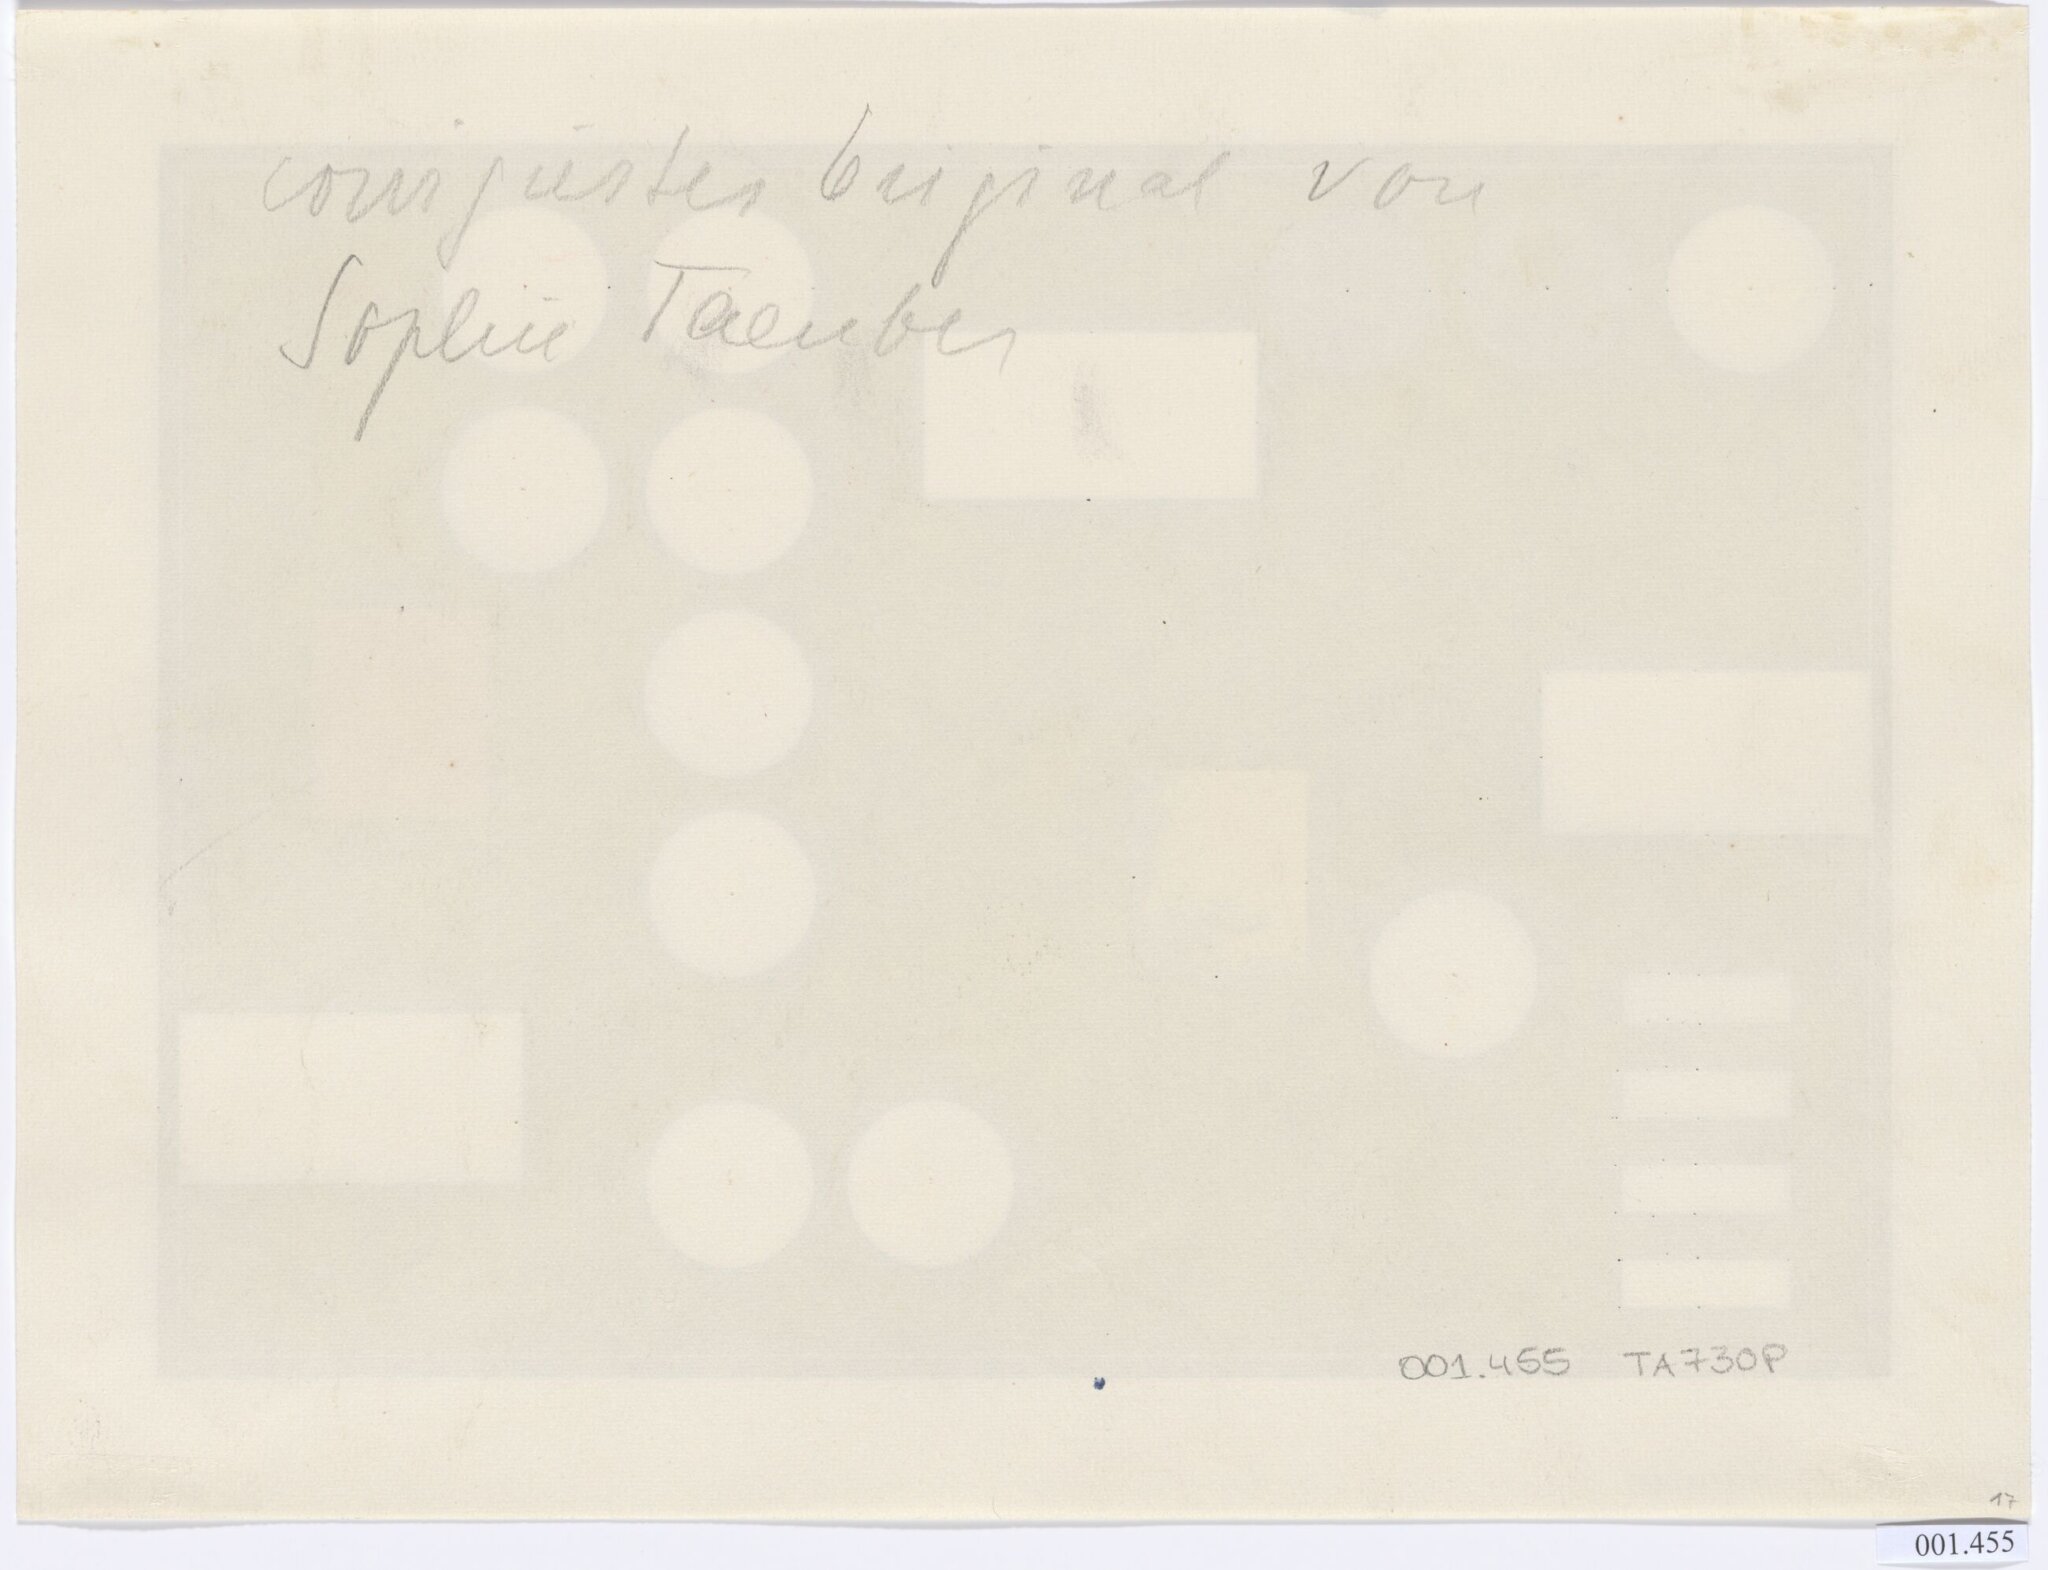 corrigiertes Original von
Sophie Taeuber
001.455 TA730P
17
001.455